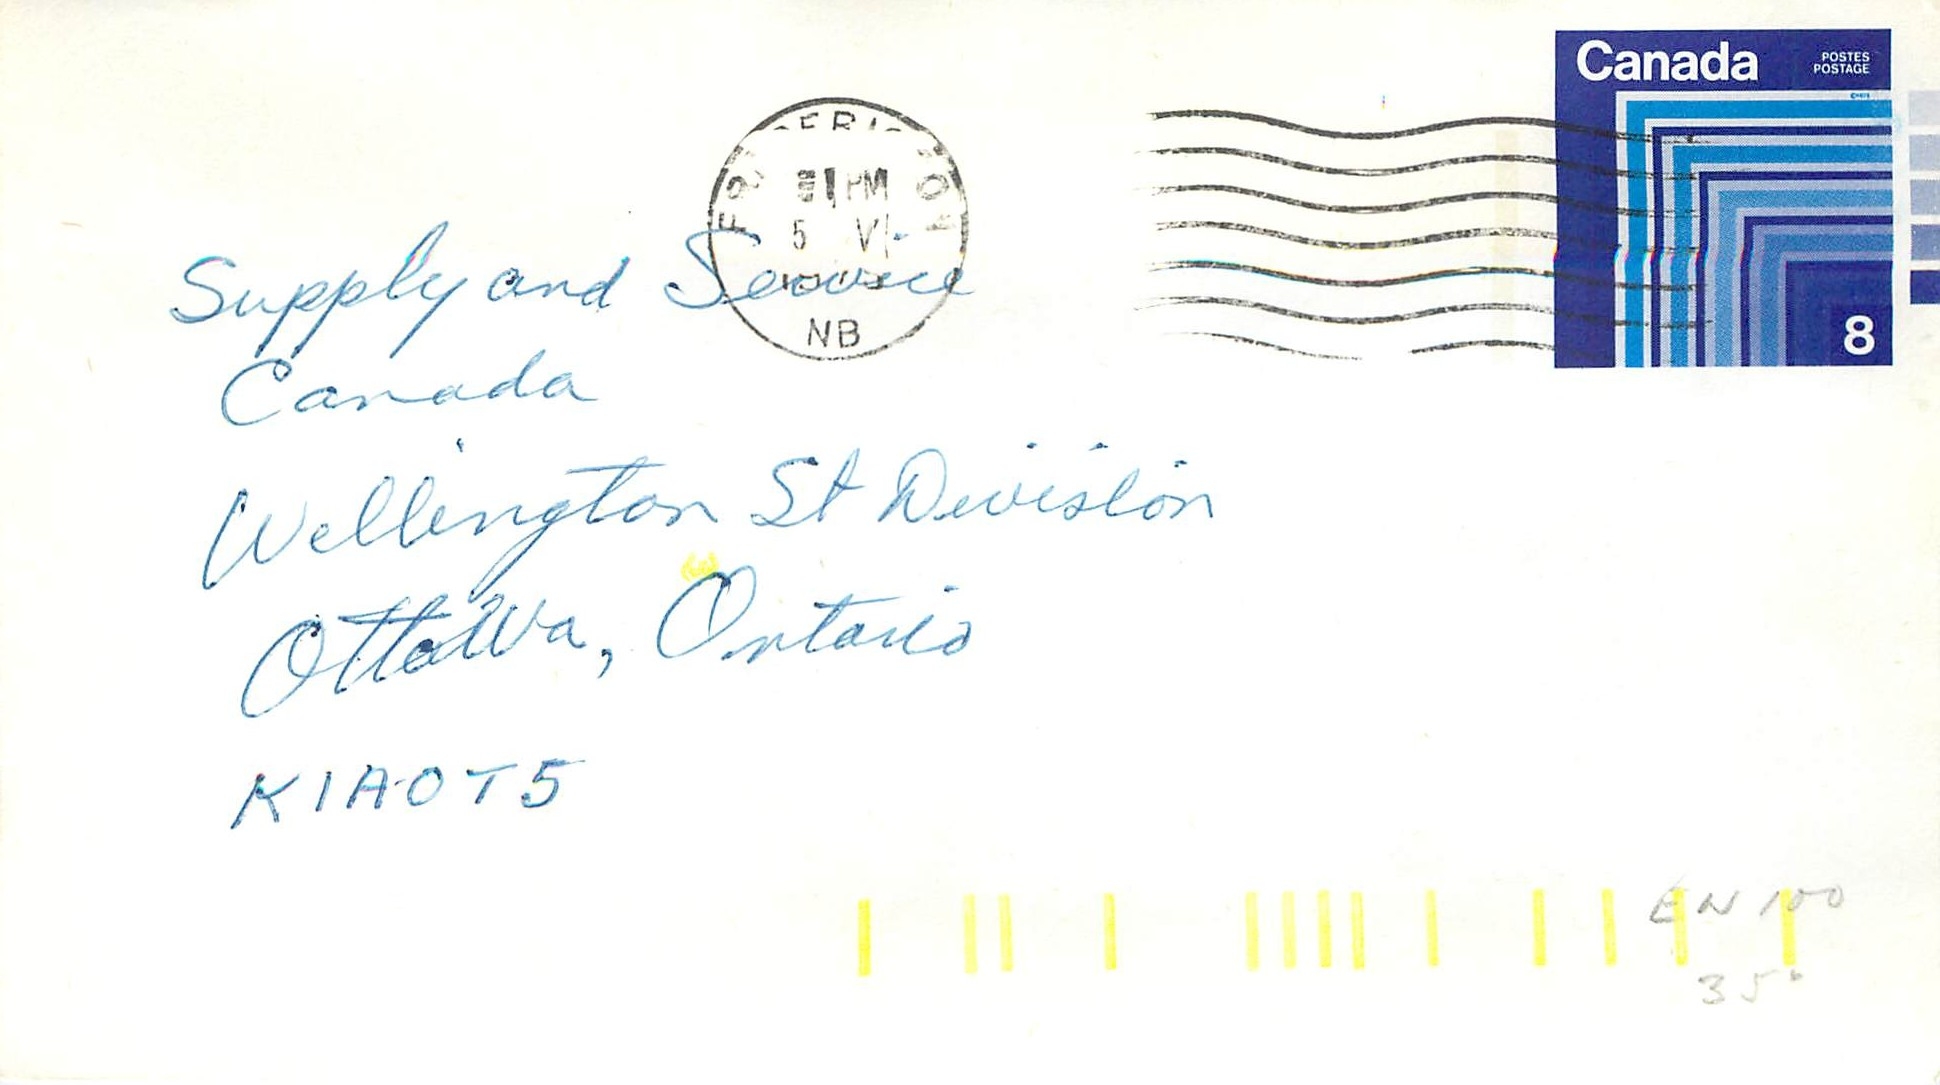 Canada
POSTES
POSTAGE
8
PM
5 VI
NB
Supply and Service
Canada
Wellington St Division
Ottawa, Ontario
K1A0T5
EN 100
35